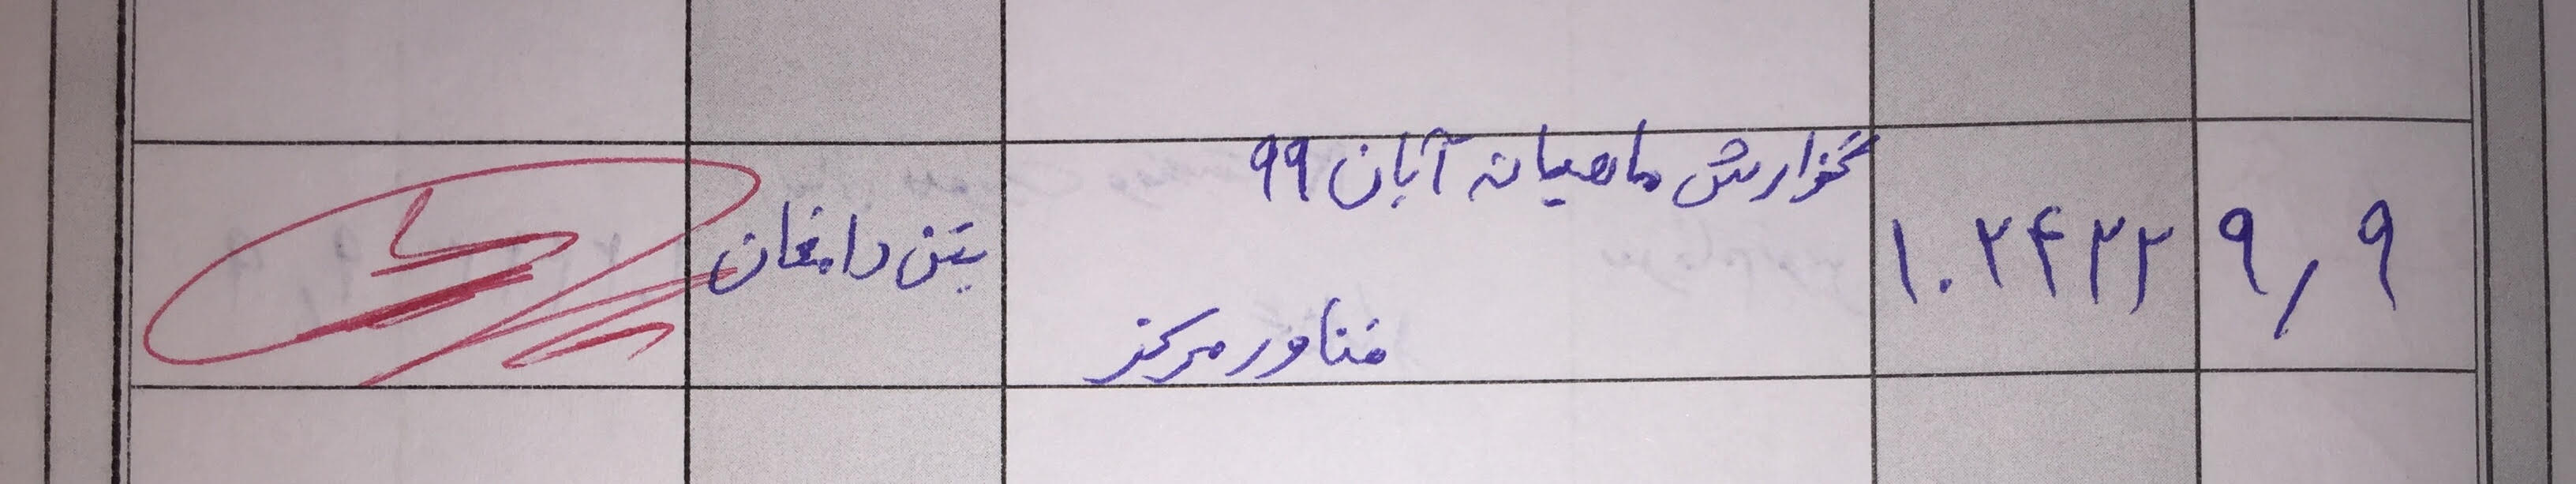 ۹٫۹
۱۰۲۴۲۲
گزارش ماهیانه آبان ۹۹
فناور مرکز
بتن دامغان